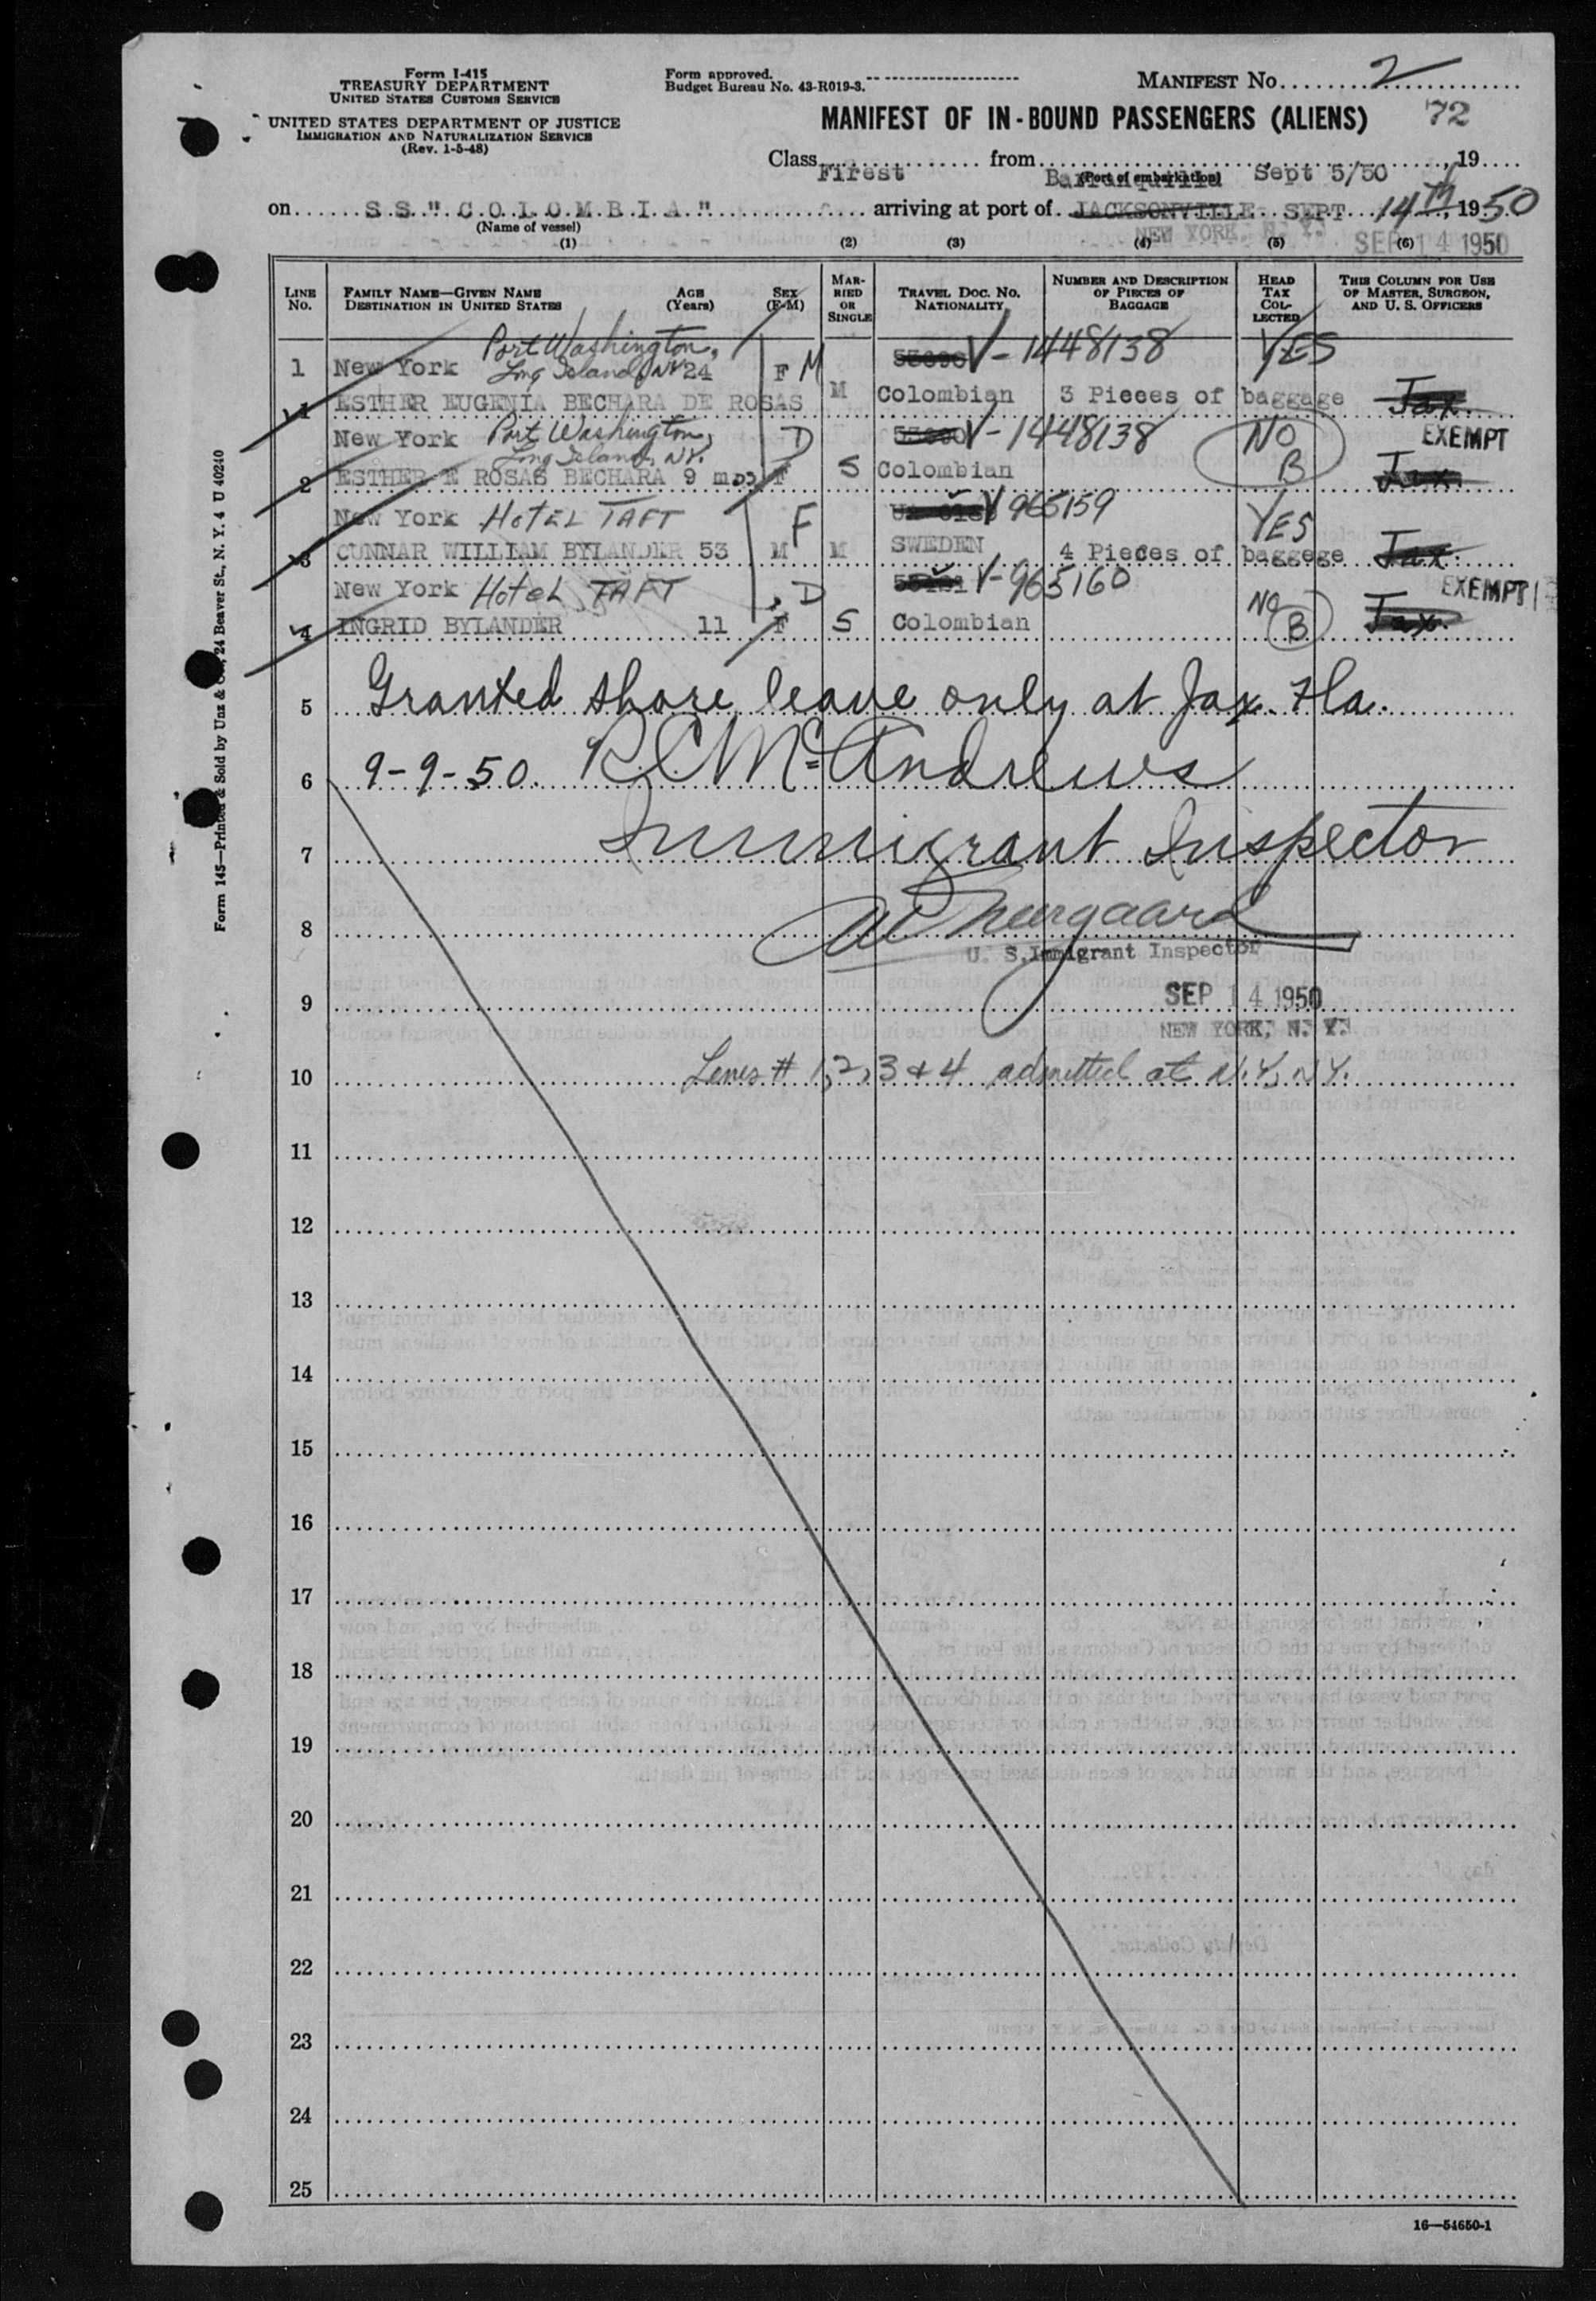 Form I-415
TREASURY DEPARTMENT
UNITED STATES CUSTOMS SERVICE
UNITED STATES DEPARTMENT OF JUSTICE
IMMIGRATION AND NATURALIZATION SERVICE
(Rev. 1-5-48)
Form approved.
Budget Bureau No. 43-R019-3.
MANIFEST NO. 2
MANIFEST OF IN-BOUND PASSENGERS (ALIENS) 72
Class Firest from Barranquilla Sept 5/50, 19
(Port of embarkation)
on S.S." C.O.L.O.M.B.I.A." arriving at port of JACKSONVILLE SEPT 14th, 1950
(Name of vessel)
NEW YORK, N. Y. SEP 14 1950
(1) (2) (3) (4) (5) (6)
LINE NO.
FAMILY NAME—GIVEN NAME DESTINATION IN UNITED STATES
AGE (Years)
SEX (F-M)
MARRIED OR SINGLE
TRAVEL DOC. NO. NATIONALITY
NUMBER AND DESCRIPTION OF PIECES OF BAGGAGE
HEAD TAX COLLECTED
THIS COLUMN FOR USE OF MASTER, SURGEON, AND U. S. OFFICERS
Port Washington,
1 New York Long Island, NY 24 F M V-1448138 YES
1 ESTHER EUGENIA BECHARA DE ROSAS M Colombian 3 Pieces of baggage Jax.
New York Port Washington, D V-1448138 NO EXEMPT
Long Island, NY.
2 ESTHER E ROSAS BECHARA 9 mos F S Colombian B Jax.
New York HOTEL TAFT F V 965159 YES
3 GUNNAR WILLIAM BYLANDER 53 M M SWEDEN 4 Pieces of baggege Jax.
New York Hotel TAFT D V-965160 No EXEMPT
4 INGRID BYLANDER 11 F S Colombian B Jax.
5 Granted shore leave only at Jax. Fla.
6 9-9-50. R C McAndrews
7 Immigrant Inspector
8
U. S. Immigrant Inspector
9 SEP 14 1950
NEW YORK, N. Y.
10 Lines # 1, 2, 3 & 4 admitted at N.Y, N.Y.
11
12
13
14
15
16
17
18
19
20
21
22
23
24
25
16—54650-1
Form 145—Printed & Sold by Unz & Co., 24 Beaver St., N. Y. 4 U 40240